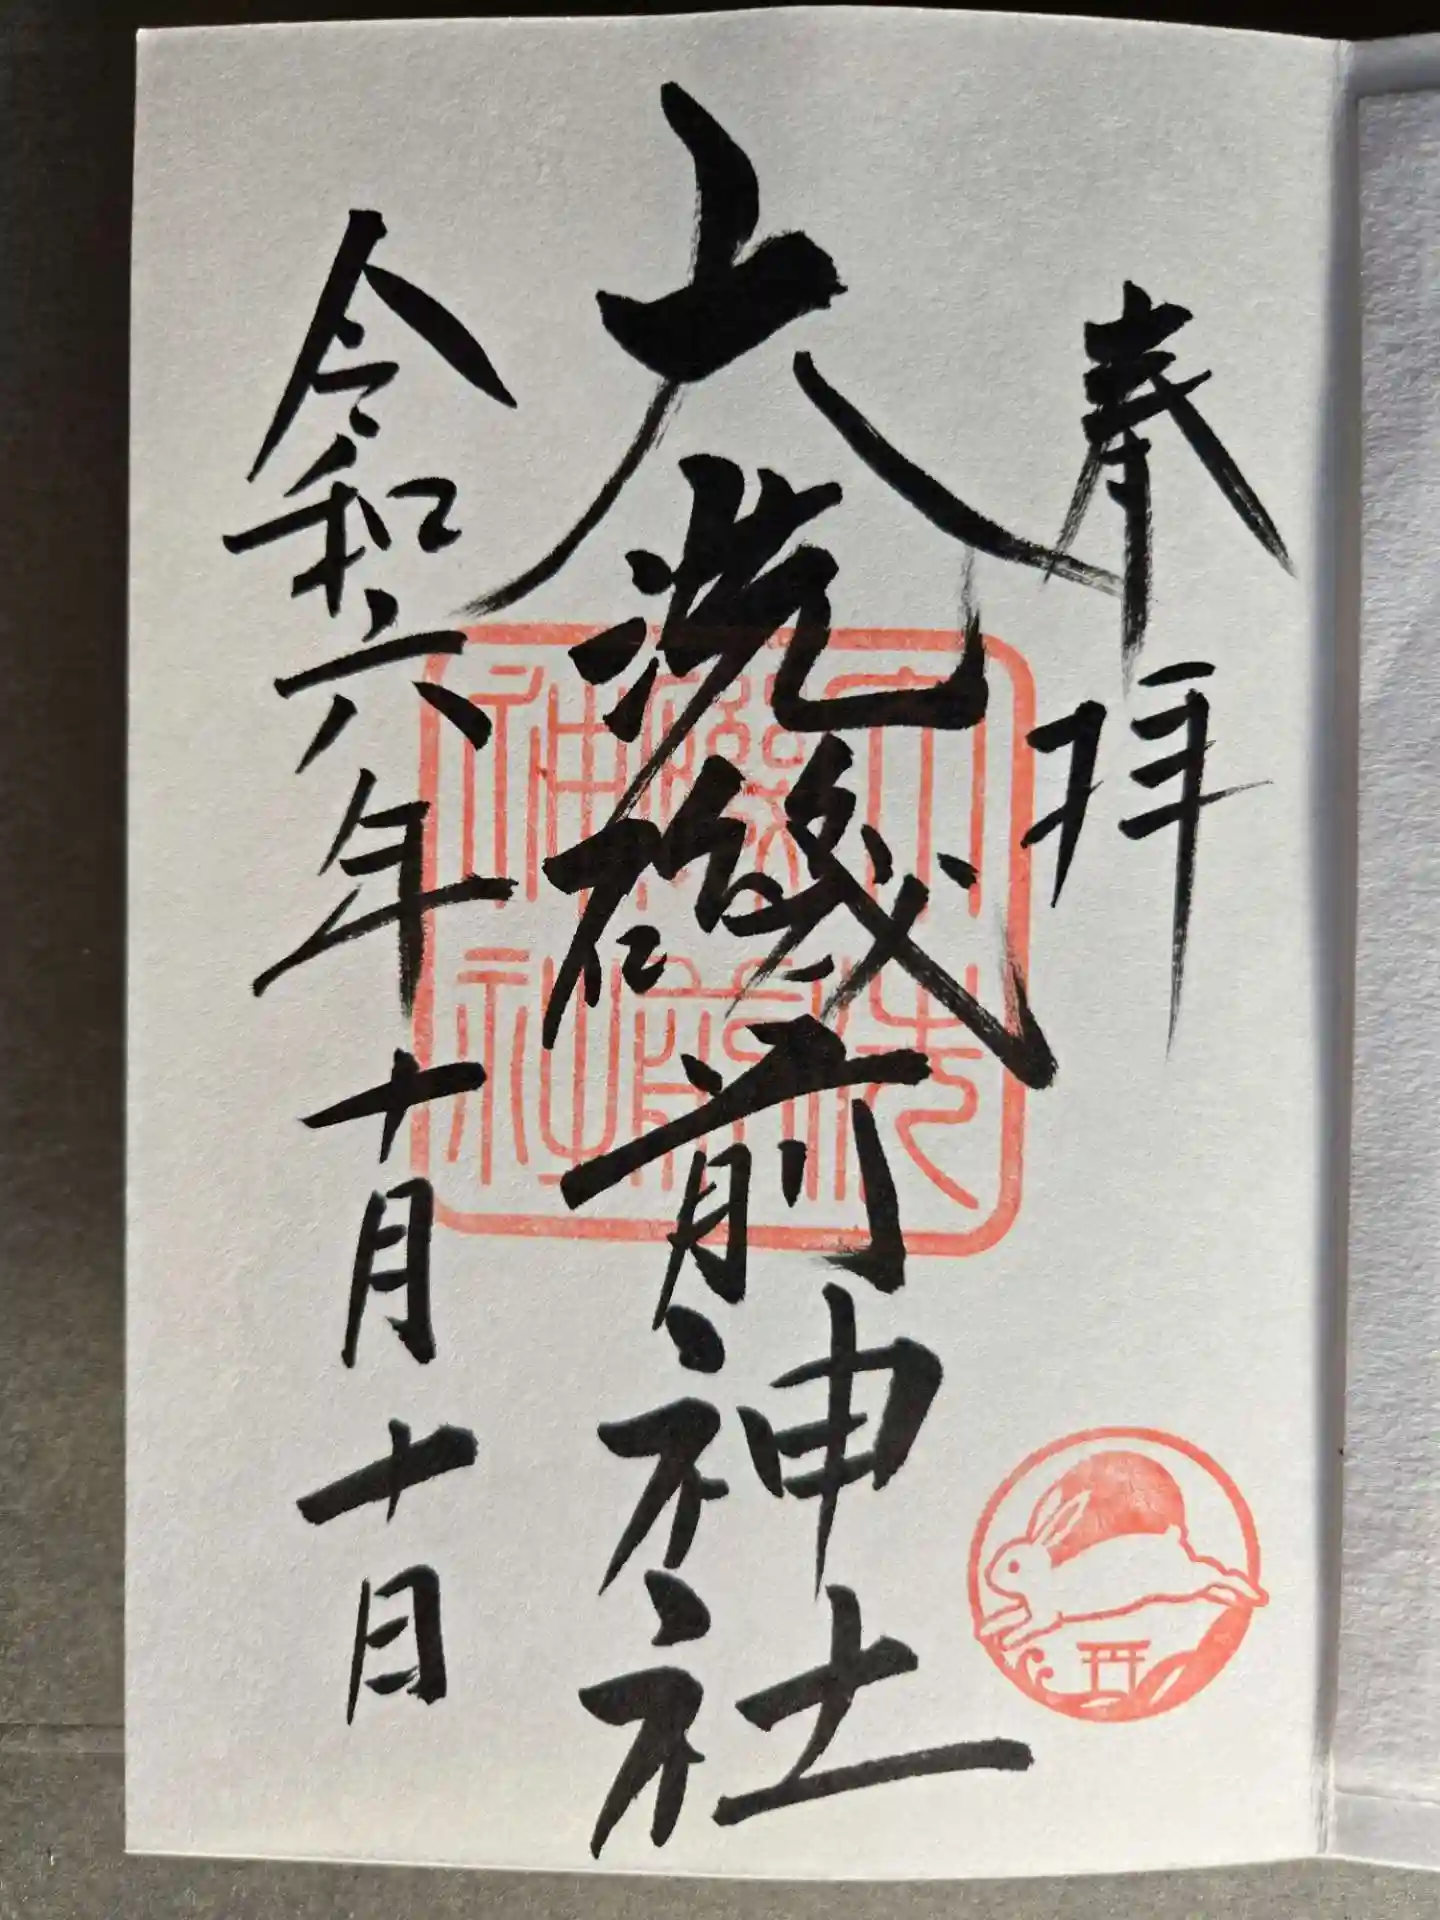 奉拝
大洗磯前神社
令和六年十月十日
大洗
磯前
神社